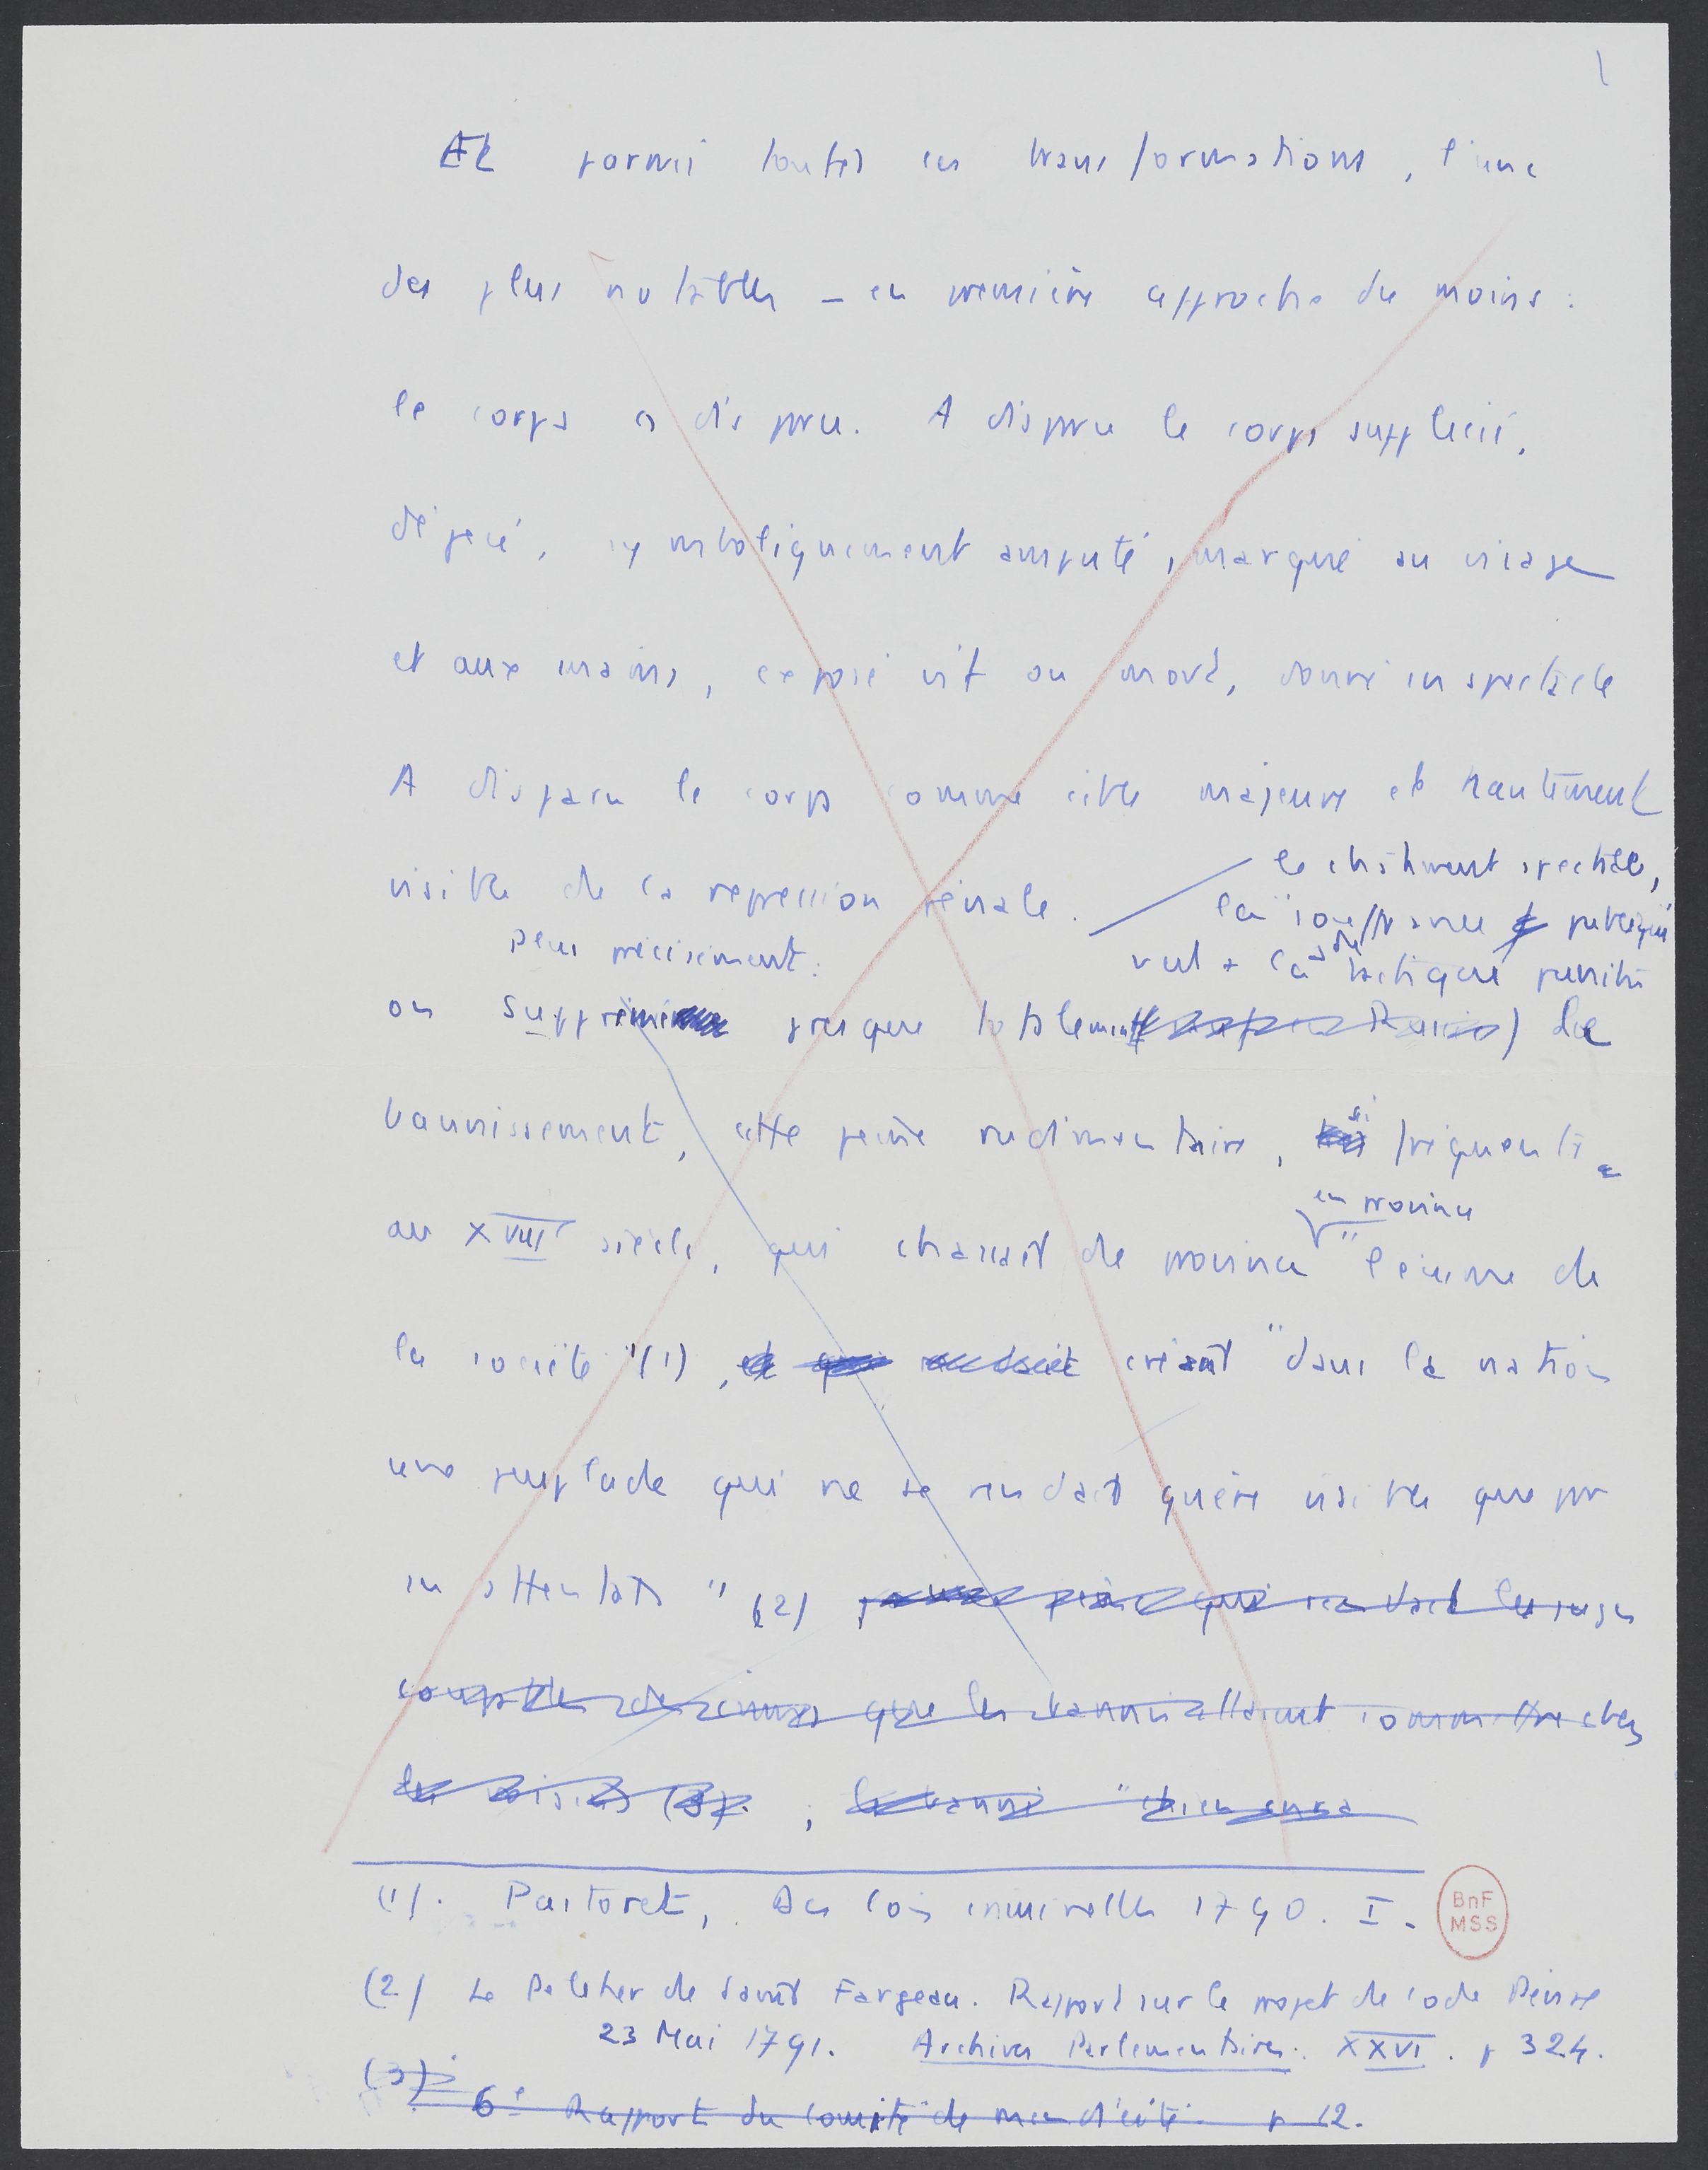 1
Et parmi toutes ces transformations, l'une
des plus notables – en première approche du moins :
le corps a disparu. A disparu le corps supplicié,
dépecé, symboliquement amputé, marqué au visage
et aux mains, exposé vif ou mort, donné en spectacle
A disparu le corps comme cible majeure et hautement
visible de la répression pénale.
le châtiment spectacle,
la souffrance publique
la tactique punitive
Plus précisément :
on supprime presque totalement le
bannissement, cette peine rudimentaire, si fréquente
au XVIII siècle, qui chassait de province
en province
"l'écume de
la société" (1), et qui créant "dans la nation
une peuplade qui ne se rendait guère visible que par
ses attentats" (2) peine qui rendait les juges
coupables des crimes que les bannis allaient commettre chez
les voisins (3). , le banni "chien enragé
(1). Pastoret, Des lois criminelles 1790. I.
BnF
MSS
(2) Le Peletier de Saint Fargeau. Rapport sur le projet de code Pénal
23 Mai 1791. Archives Parlementaires. XXVI. p 324.
(3)
6e Rapport du Comité de mendicité p 12.